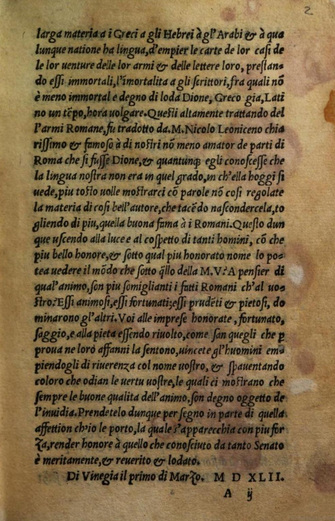 2
larga materia a i Greci a gli Hebrei à gl'Arabi & à qua
lunque natione ha lingua, d'empier le carte de lor casi de
le lor uenture delle lor armi & delle lettere loro, prestan
do essi immortali, l'imortalita a gli scrittori, fra quali nõ
è meno immortal e degno di loda Dione, Greco gia, Lati
no un tẽpo, hora volgare. Questi altamente trattando del
l'armi Romane, fu tradotto da. M. Nicolo Leoniceno chia
rissimo & famoso à di nostri nõ meno amator de parti di
Roma che si fusse Dione, & quantunq; egli conoscesse che
la lingua nostra non era in quel grado, in ch'ella hoggi si
uede, piu tosto uolle mostrarci cõ parole nõ cosi regolate
la materia di cosi bell'autore, che tacẽdo nascondercela, to
gliendo di piu, quella buona fama à i Romani. Questo dun
que uscendo alla luce e al cospetto di tanti homini, cõ che
piu bello honore, & sotto qual piu honorato nome lo po=
tea uedere il mõdo che sotto q̃llo della M.V? A pensier di
qual'animo, son piu somiglianti i fatti Romani ch'al uo=
stro? Essi animosi, essi fortunati; essi prudẽti & pietosi, do
minarono gl'altri. Voi alle imprese honorate, fortunato,
saggio, e alla pieta essendo riuolto, come san quegli che p
proua ne lor affanni la sentono, uincete gl'huomini em=
piendogli di riuerenza col nome vostro, & spauentando
coloro che odian le uertu vostre, le quali ci mostrano che
sempre le buone qualita dell'animo, son degno oggetto de
l'inuidia. Prendetelo dunque per segno in parte di quella
affettion ch'io le porto, la quale s'apparecchia con piu for
za, render honore à quello che conosciuto da tanto Senato
è meritamente, & reuerito & lodato.
Di Vinegia il primo di Marzo. M D XLII.
A ij